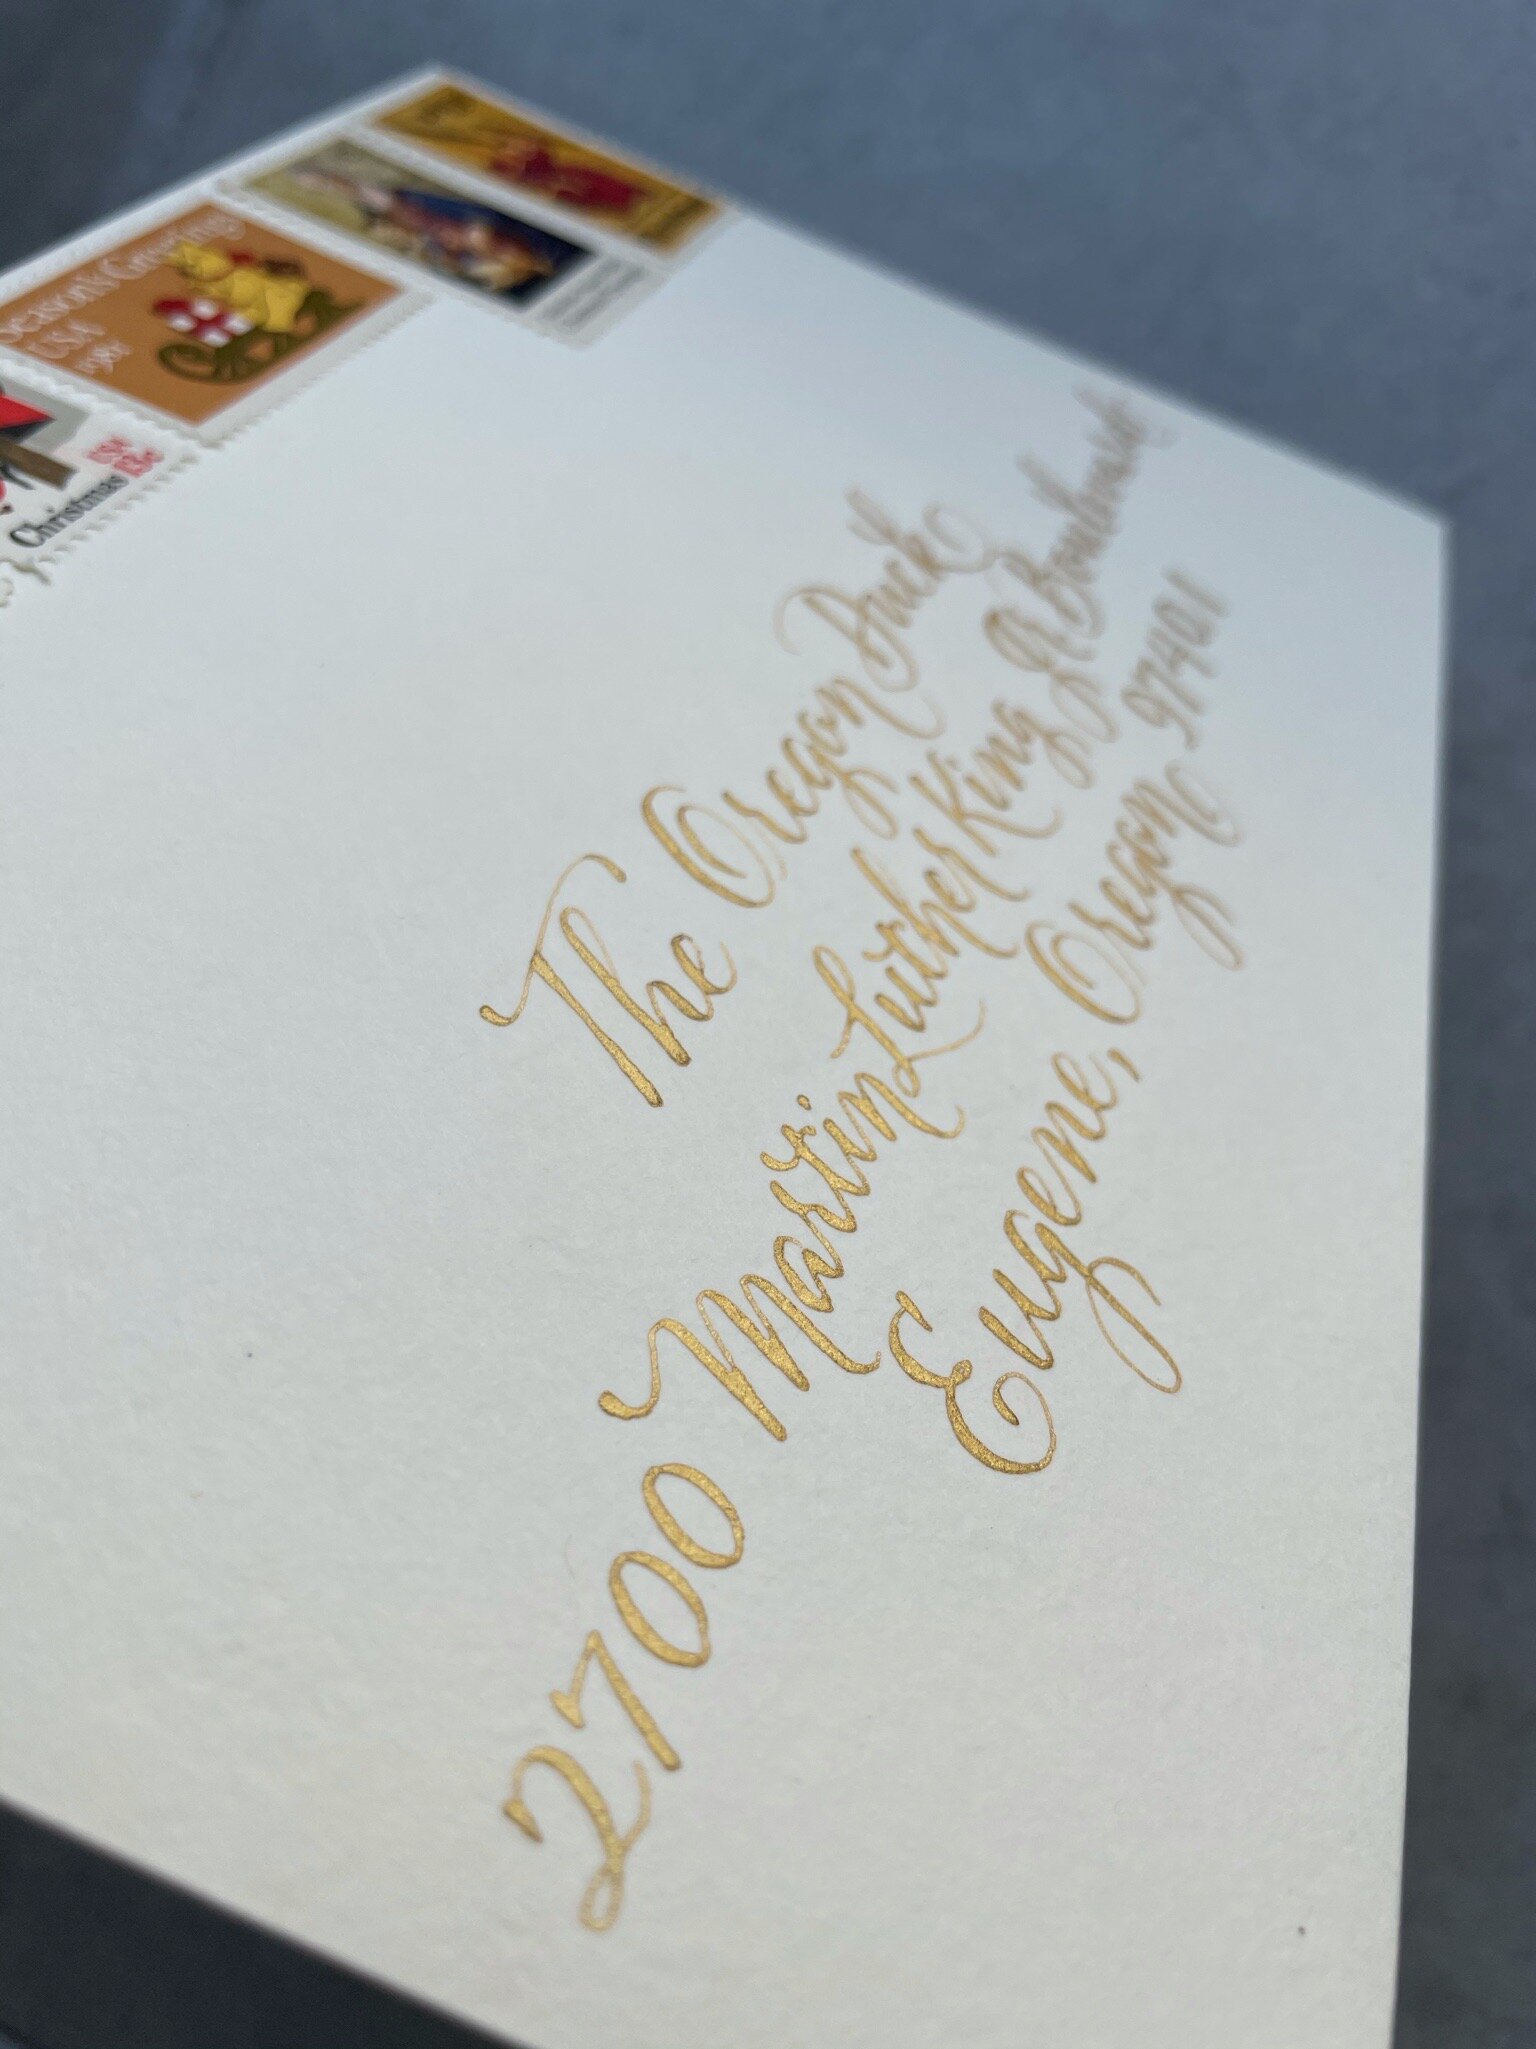 Season's Greetings
USA
1981
USA
13c
Christmas
The Oregon Duck
2700 Martin Luther King Jr Boulevard
Eugene, Oregon 97401